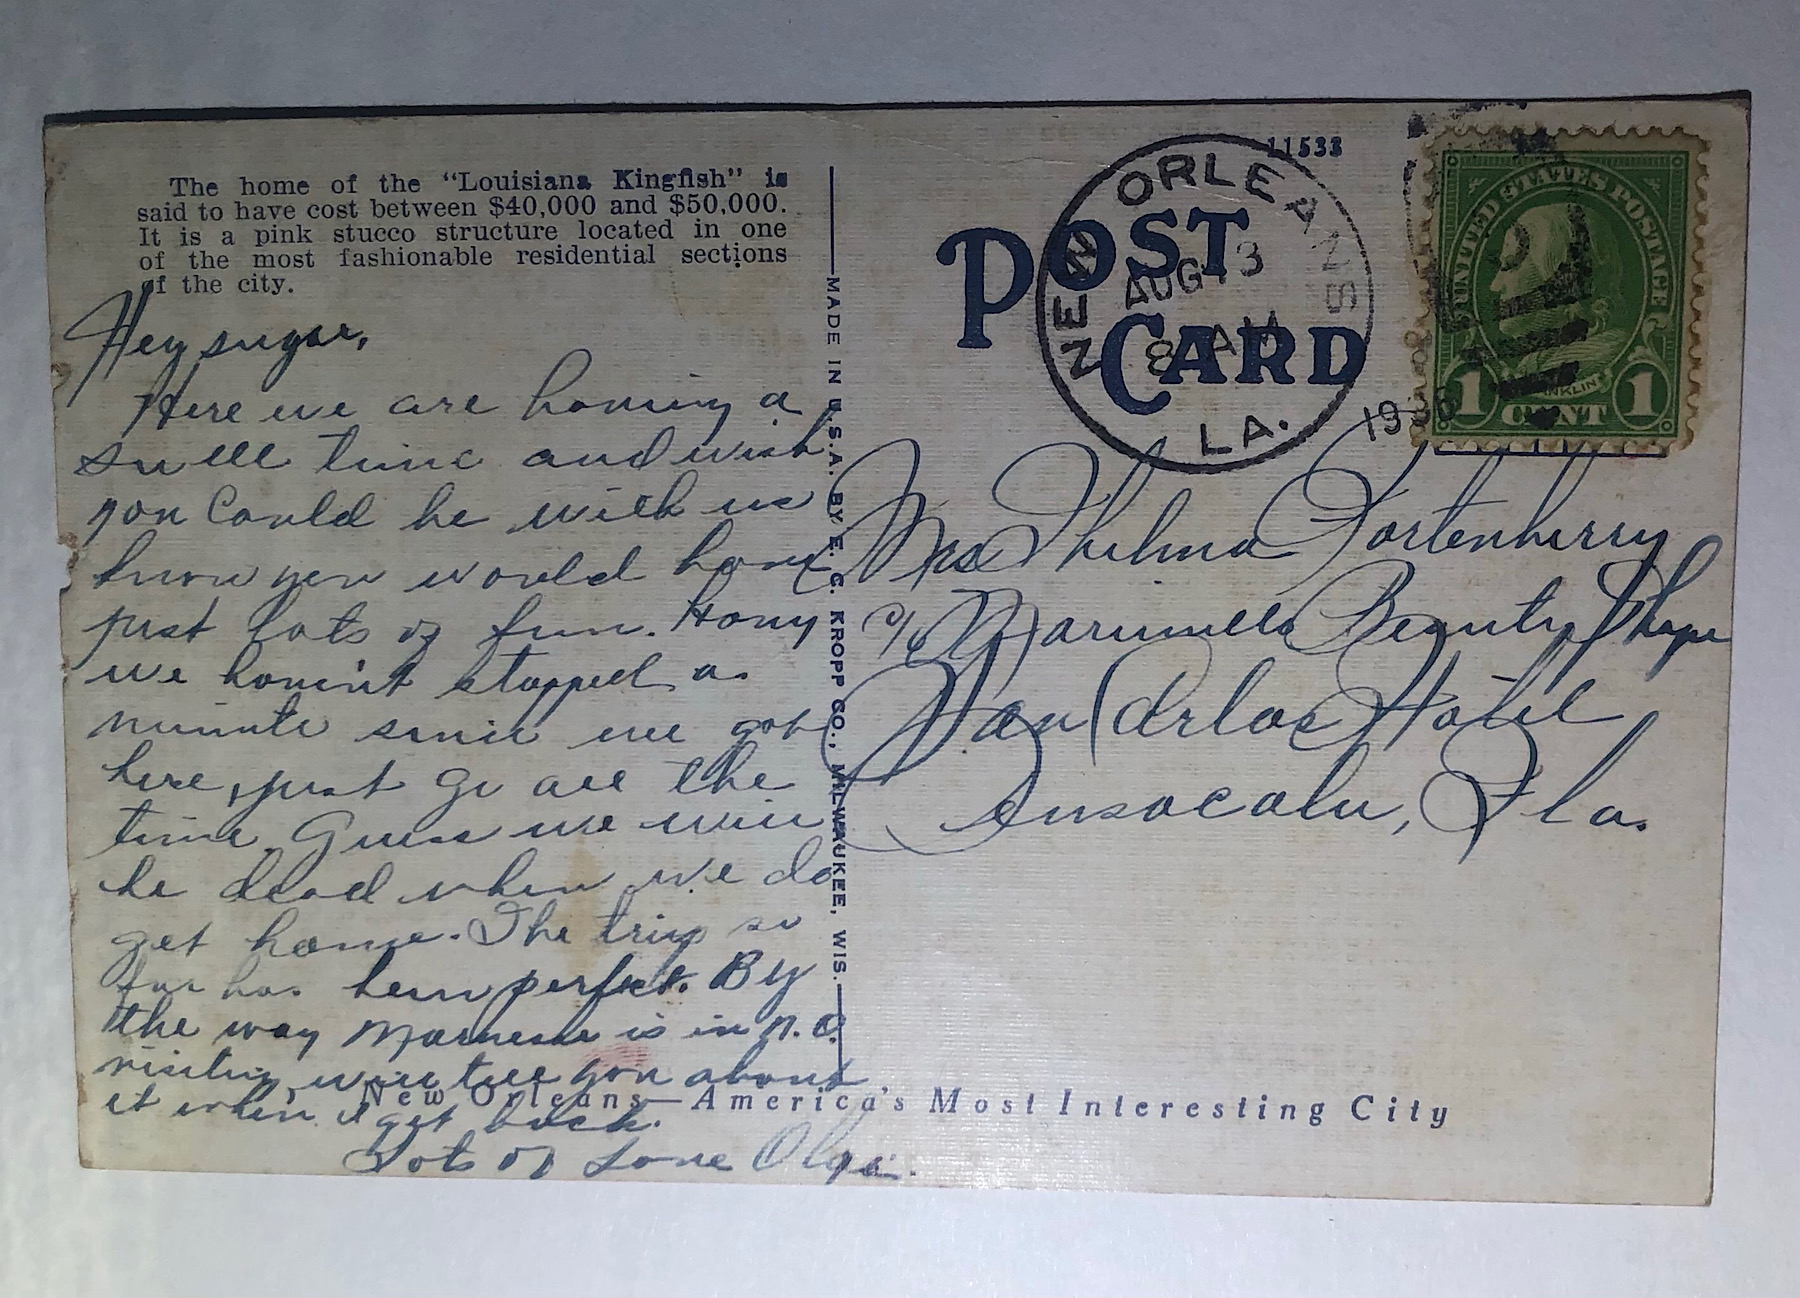 The home of the “Louisiana Kingfish” is
said to have cost between $40,000 and $50,000.
It is a pink stucco structure located in one
of the most fashionable residential sections
of the city.
Hey sugar,
Here we are having a
swell time and wish
you could be with us
know you would have
just lots of fun. Hony
we haven't stopped a
minute since we got
here, just go all the
time. Guess we will
be dead when we do
get home. The trip so
far has been perfect. By
the way is in N.O.
visiting, will tell you about
it when I get back.
Lots of Love Olga.
MADE IN U.S.A. BY E. C. KROPP CO., MILWAUKEE, WIS.
11533
POST
CARD
NEW ORLEANS
AUG 13
8 AM
LA.
UNITED STATES POSTAGE
FRANKLIN
1 CENT 1
Mrs Thelma Fortenberry
c/o Beauty Shope
San Carlos Hotel
Pensacola, Fla.
New Orleans—America's Most Interesting City